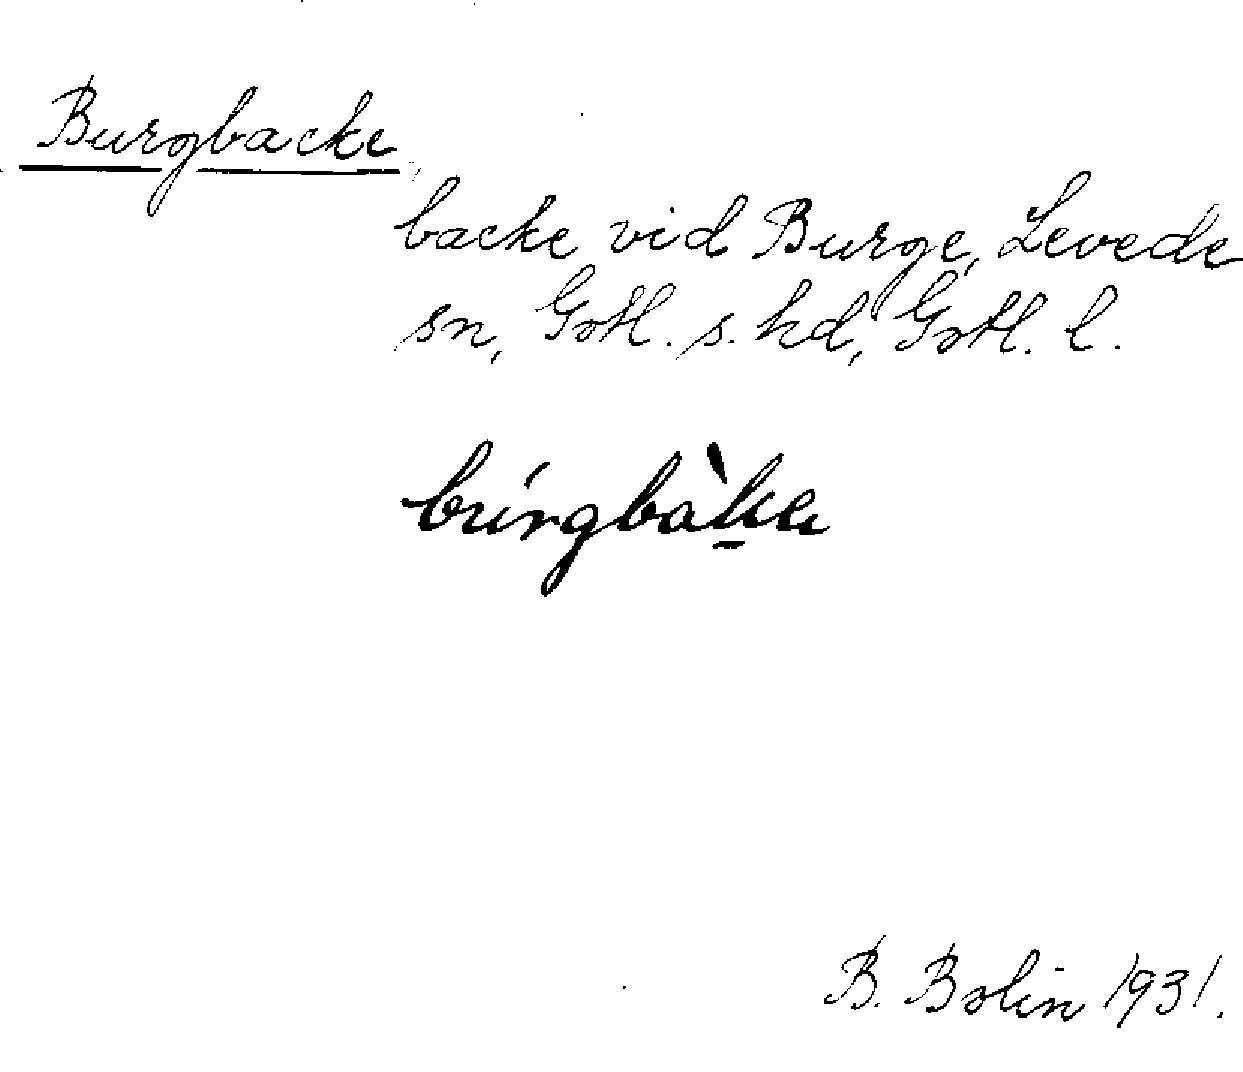 Burgbacke,
backe vid Burge, Levede
sn, Gotl. s. hd, Gotl. l.
B. Bolin 1931.